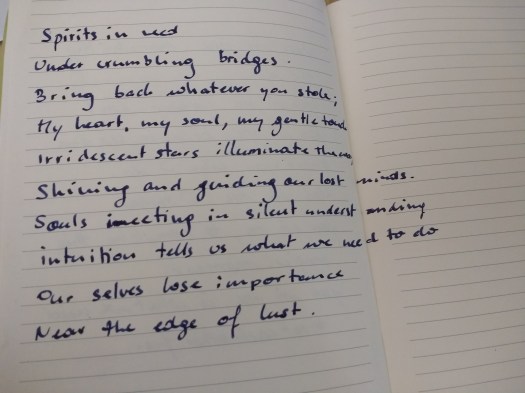 Spirits in need
Under crumbling bridges.
Bring back whatever you stole;
My heart, my soul, my gentle touch
Irridescent stars illuminate the
Shining and guiding our lost minds.
Souls meeting in silent understanding
intuition tells us what we need to do
Our selves lose importance
Near the edge of lust.